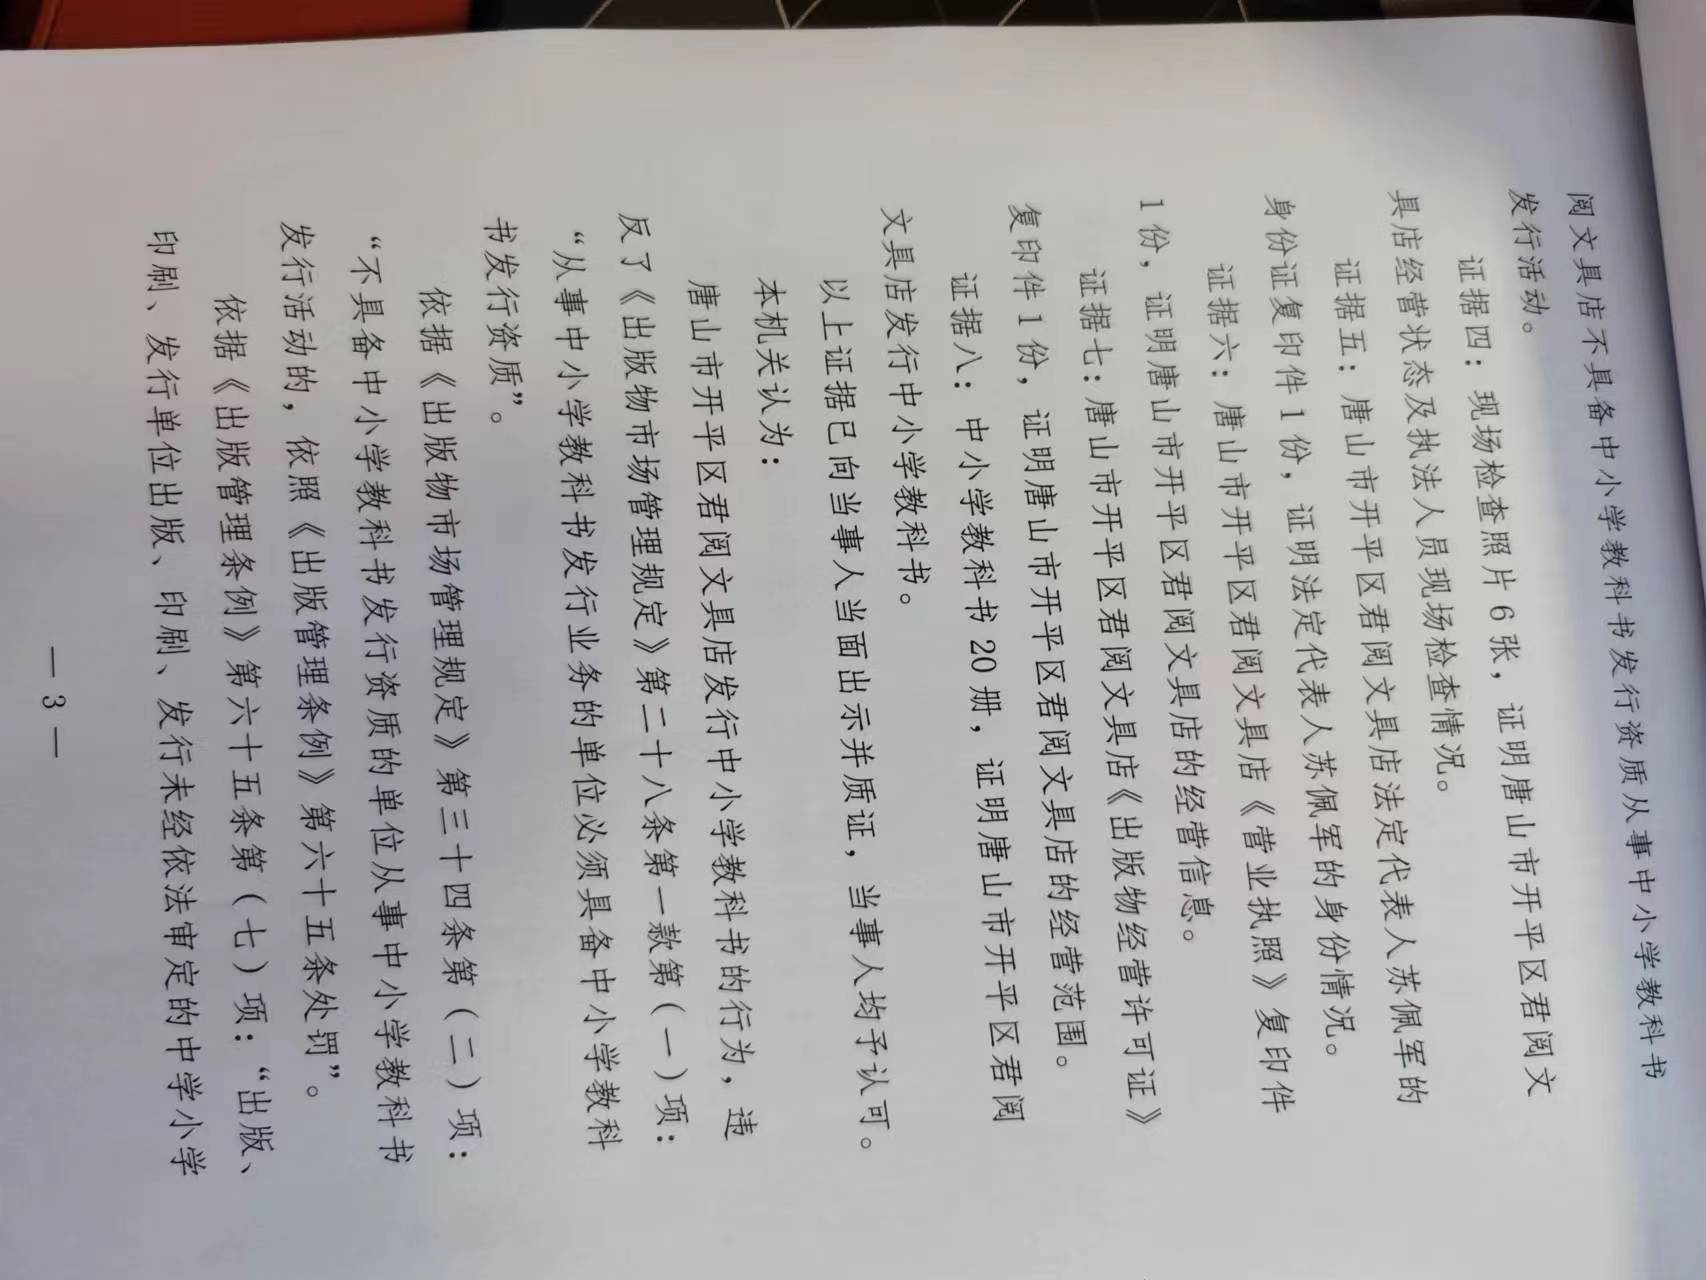 阅文具店不具备中小学教科书发行资质从事中小学教科书
发行活动。
证据四：现场检查照片6张，证明唐山市开平区君阅文
具店经营状态及执法人员现场检查情况。
证据五：唐山市开平区君阅文具店法定代表人苏佩军的
身份证复印件1份，证明法定代表人苏佩军的身份情况。
证据六：唐山市开平区君阅文具店《营业执照》复印件
1份，证明唐山市开平区君阅文具店的经营信息。
证据七：唐山市开平区君阅文具店《出版物经营许可证》
复印件1份，证明唐山市开平区君阅文具店的经营范围。
证据八：中小学教科书20册，证明唐山市开平区君阅
文具店发行中小学教科书。
以上证据已向当事人当面出示并质证，当事人均予认可。
本机关认为：
唐山市开平区君阅文具店发行中小学教科书的行为，违
反了《出版物市场管理规定》第二十八条第一款第（一）项：
“从事中小学教科书发行业务的单位必须具备中小学教科
书发行资质”。
依据《出版物市场管理规定》第三十四条第（二）项：
“不具备中小学教科书发行资质的单位从事中小学教科书
发行活动的，依照《出版管理条例》第六十五条处罚”。
依据《出版管理条例》第六十五条第（七）项：“出版、
印刷、发行单位出版、印刷、发行未经依法审定的中学小学
— 3 —